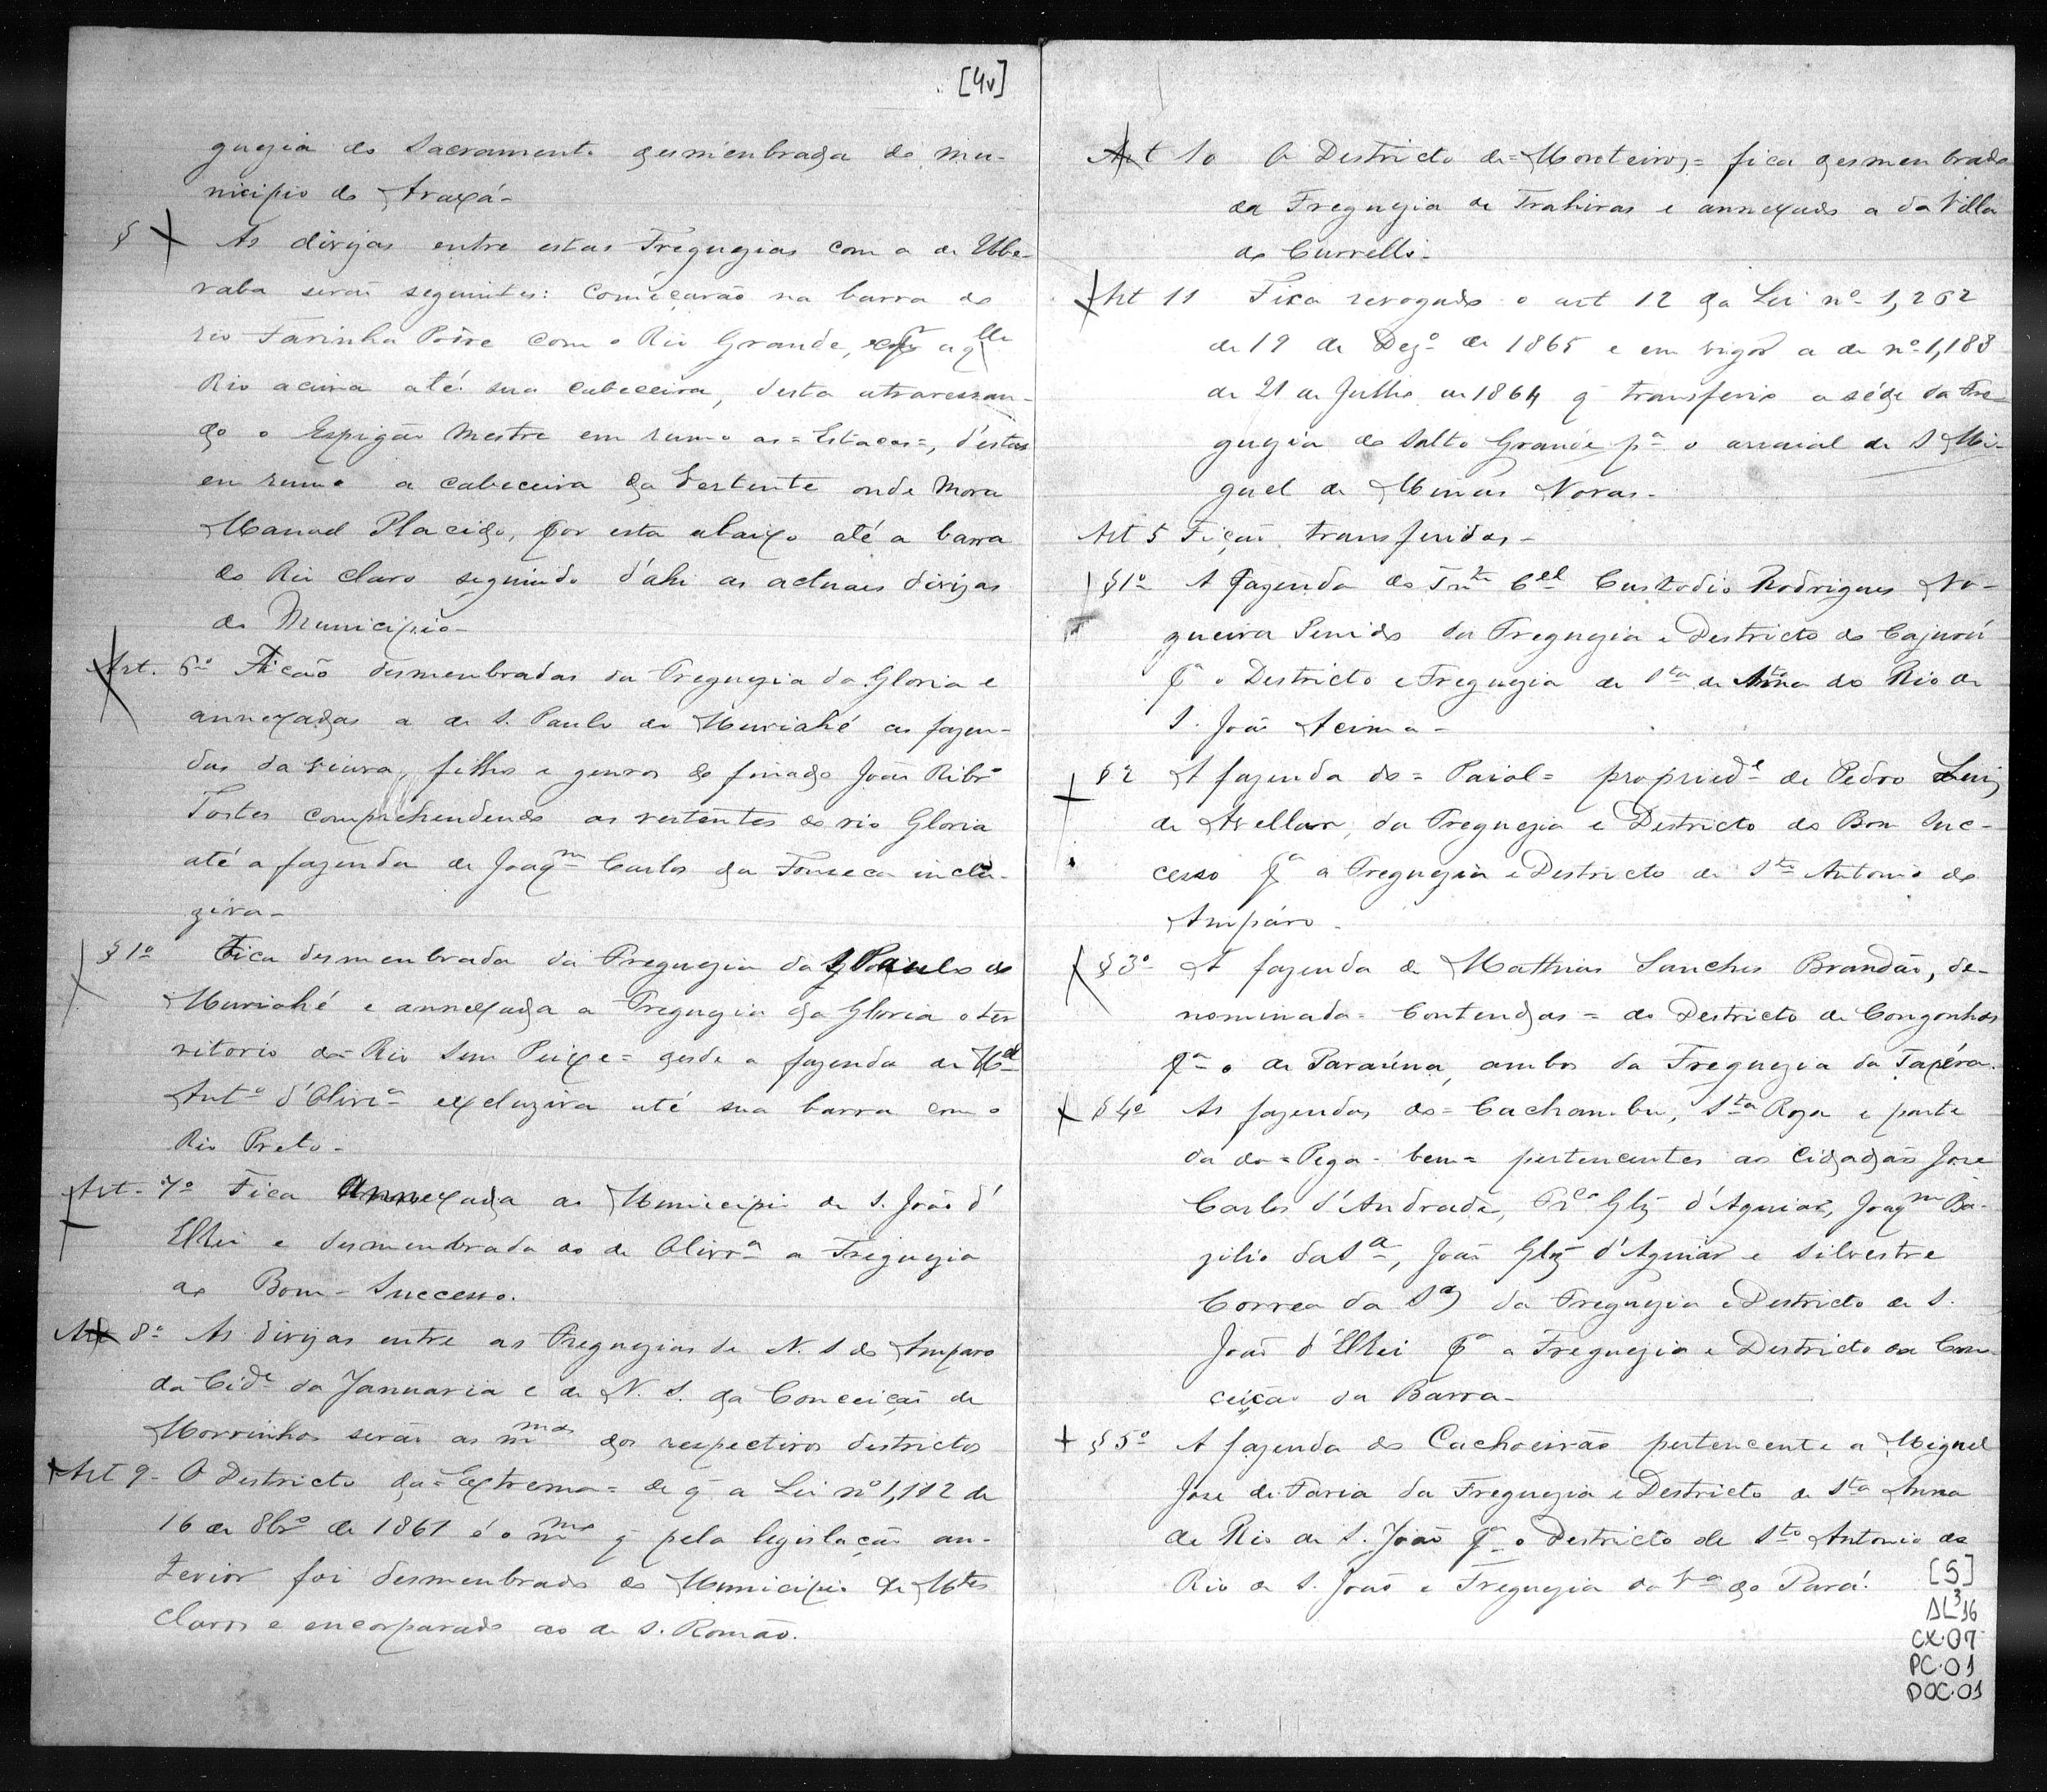 [4v]
guezia do Sacramento desmenbrada do mu-
nicipio do Araxá-
§ As divizas entre estas Freguezias com a de Ube-
raba serão seguintes: Começarão na barra do
rio Farinha Pôdre com o Rio Grande, aqlle
Rio acima até sua cabeceira, desta atravessan-
do o Espigão Mestre em rumo as = Estacas =, d'estas
em rumo a cabeceira da Vertente onde mora
Manoel Placido, por esta abaixo até a barra
do Rio claro seguindo d'ahi as actuaes divizas
do Municipio-
Art. 6º Ficão desmenbradas da Freguezia da Gloria e
annexadas a de S. Paulo do Muriahé as fazen-
das da viuva, filhos e genros do finado João Ribrº
Tostes comprehendendo as vertentes do rio Gloria
até a fazenda de Joaqm Carlos da Fonseca inclu-
ziva-
§ 1º Fica desmenbrada da Freguezia da S Paulo do
Muriahé e annexada a Freguezia da Gloria o ter
ritorio do = Rio Sem Peixe = desde a fazenda de Mel
Antº d'Olivrª excluziva até sua barra com o
Rio Preto-
Art. 7º Fica Annexada ao Municipio de S. João d'
ElRei e desmembrada do de Olivrª a Freguezia
do Bom-Successo.
Art 8º As divizas entre as Freguezias de N. S do Amparo
da Cide da Januaria e de N. S. da Conceição de
Morrinhos serão as mmas dos respectivos districtos
Art 9- O Districto da = Extrema = de q a Lei nº 1,112 de
16 de 8brº de 1861 é o mmo q pela legislação an-
terior foi desmenbrado do Municipio de Mtes
claros e encorporado ao de S. Romão.
Art 10 O Destricto de = Monteiros = fica desmenbrado
da Freguezia de Trahiras e annexado a da Villa
do Currello-
Art 11 Fica revogado o art 12 da Lei nº 1,262
de 19 de Dezº de 1865 e em vigor a de nº 1,188
de 21 de Julho de 1864 q transferio a séde da Fre-
guezia do Salto Grande pª o arraial de S Mi-
guel de Minas Novas-
Art 5 Ficão transferidas-
§ 1º A fazenda do Tnte Cel Custodio Rodrigues No-
gueira Penido da Freguezia e Destricto do Cajurú
pª o Destricto e Freguezia de Sta de Anna do Rio de
S. João Acima-
§ 2 A fazenda do = Paiol = propriede de Pedro Luiz
de Avellar, da Freguezia e Districto do Bom Suc-
cesso pª a Freguezia e Destricto de Sto Antonio do
Ampáro-
§ 3º A fazenda de Mathias Sanches Brandão, de-
nominada = Contendas = do Destricto de Congonhas
pª o de Paraúna, ambos da Freguezia da Tapéra.
§ 4º As fazendas do = Cachambu, Sta Roza e parte
da do = Pega-bem = pertencentes ao cidadão Jose
Carlos d'Andrade, Frco Glz d'Aguiar, Joaqm Ba-
zilio da Sª, João Glz d'Aguiar e Silvestre
Correa da Sª, da Freguezia e Destricto de S.
João d'ElRei pª a Freguezia e Destricto da Con-
ceição da Barra-
§ 5º A fazenda do Cachoeirão pertencente a Miguel
Jose de Faria da Freguezia e Destricto de Sta Anna
de Rio de S. João pª o Destricto de Sto Antonio do
Rio de S. João e Freguezia da Vª do Pará.
[5]
AL³16
CX.07
PC.01
DOC.01